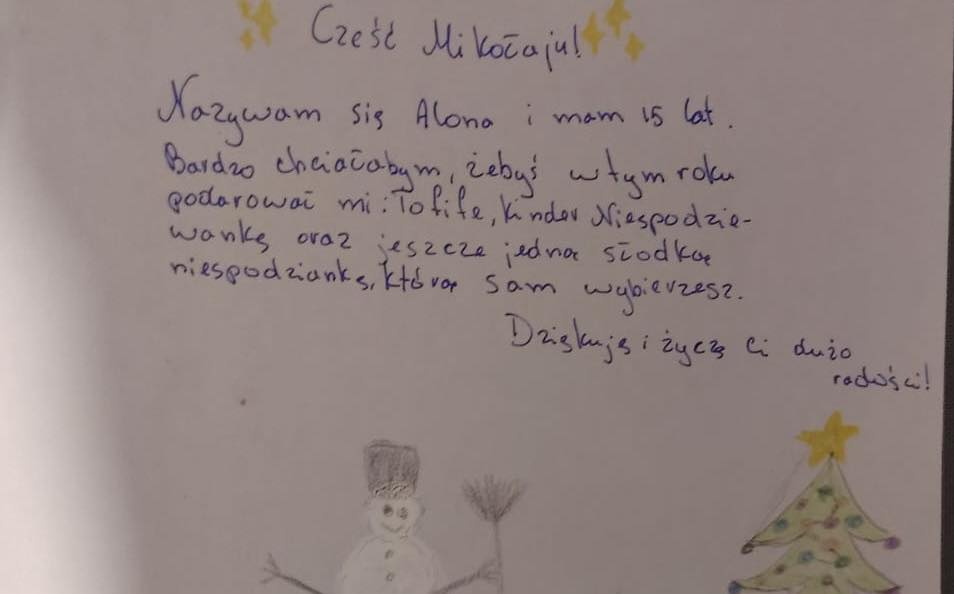 Cześć Mikołaju!
Nazywam się Alona i mam 15 lat.
Bardzo chciałabym, żebyś w tym roku
podarował mi: Tofife, Kinder Niespodzie-
wankę oraz jeszcze jedną słodką
niespodziankę, którą sam wybierzesz.
Dziękuję i życzę Ci dużo
radości!